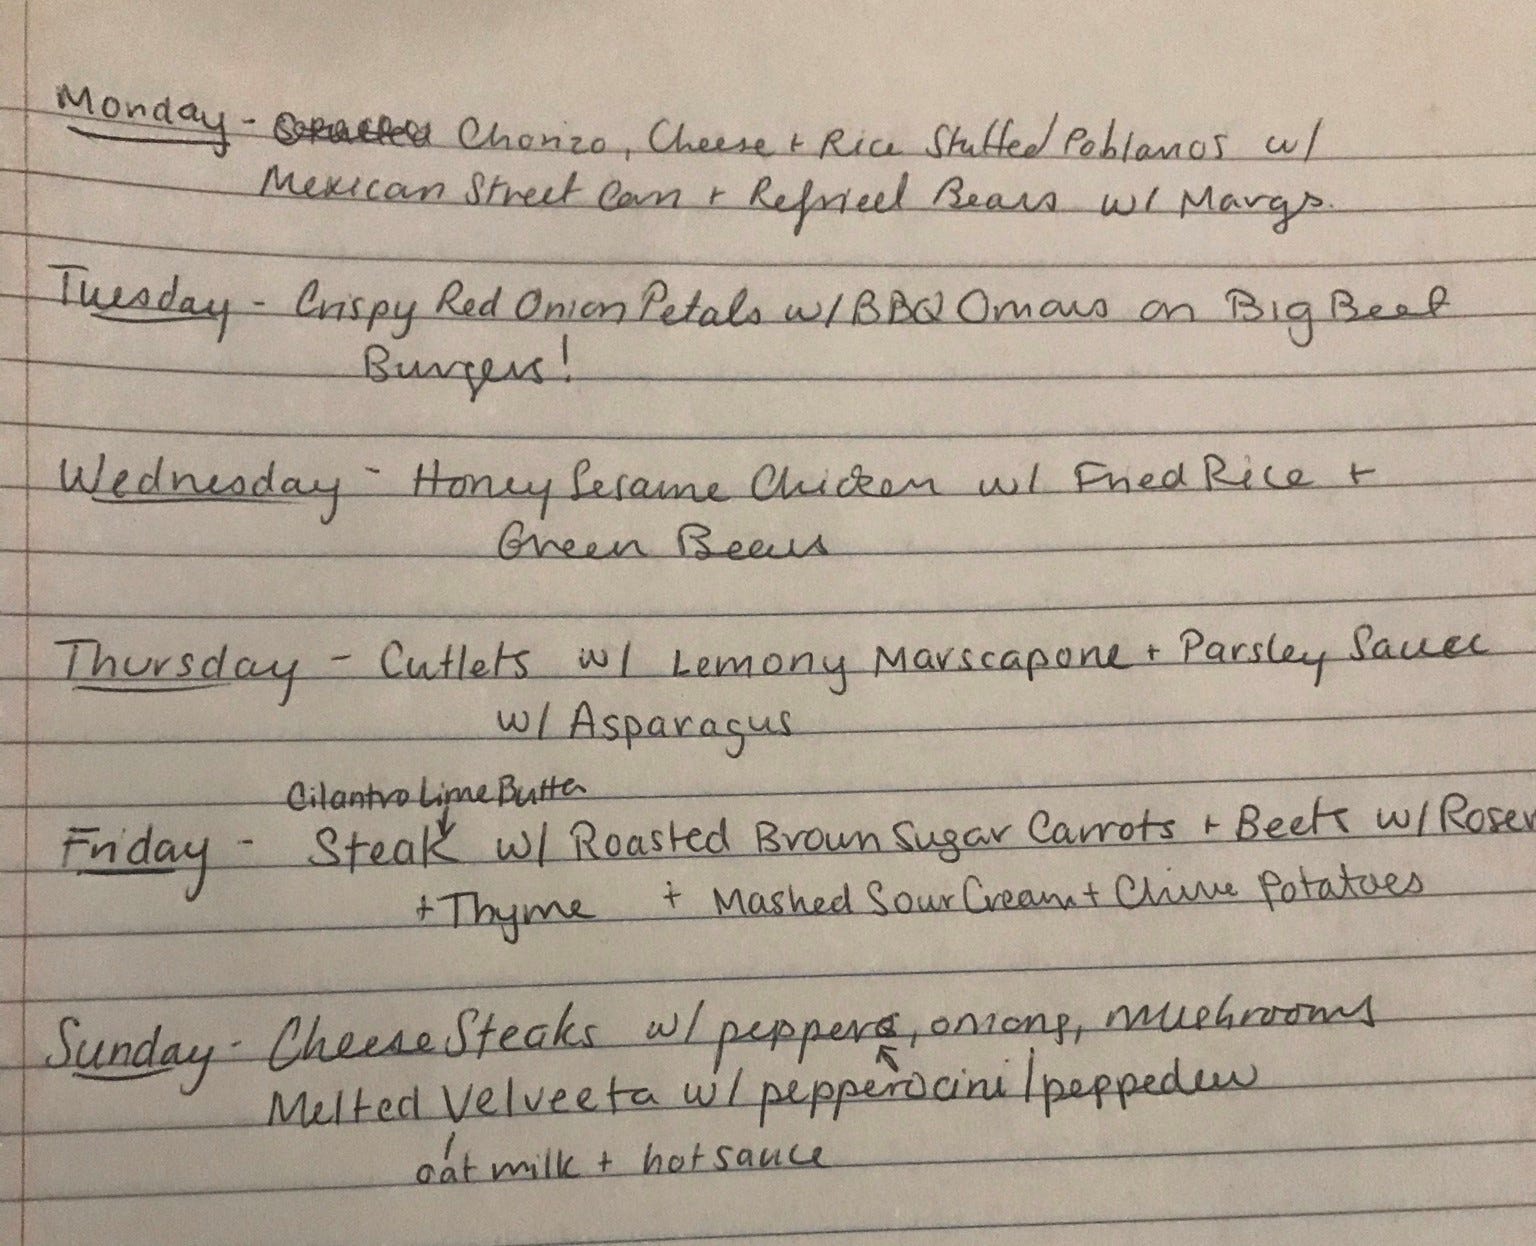 Monday - Chorizo, Cheese + Rice Stuffed Poblanos w/
Mexican Street Corn + Refried Beans w/ Margs.
Tuesday - Crispy Red Onion Petals w/ BBQ on Big Beef
Burgers!
Wednesday - Honey Sesame Chicken w/ Fried Rice +
Green Beans
Thursday - Cutlets w/ Lemony Marscapone + Parsley Sauce
w/ Asparagus
Cilantro Lime Butter
Friday - Steak w/ Roasted Brown Sugar Carrots + Beets w/
+ Thyme + Mashed Sour Cream + Chive Potatoes
Sunday - Cheese Steaks w/ peppers, onions, mushrooms
Melted Velveeta w/ pepperocini / peppedew
oat milk + hot sauce